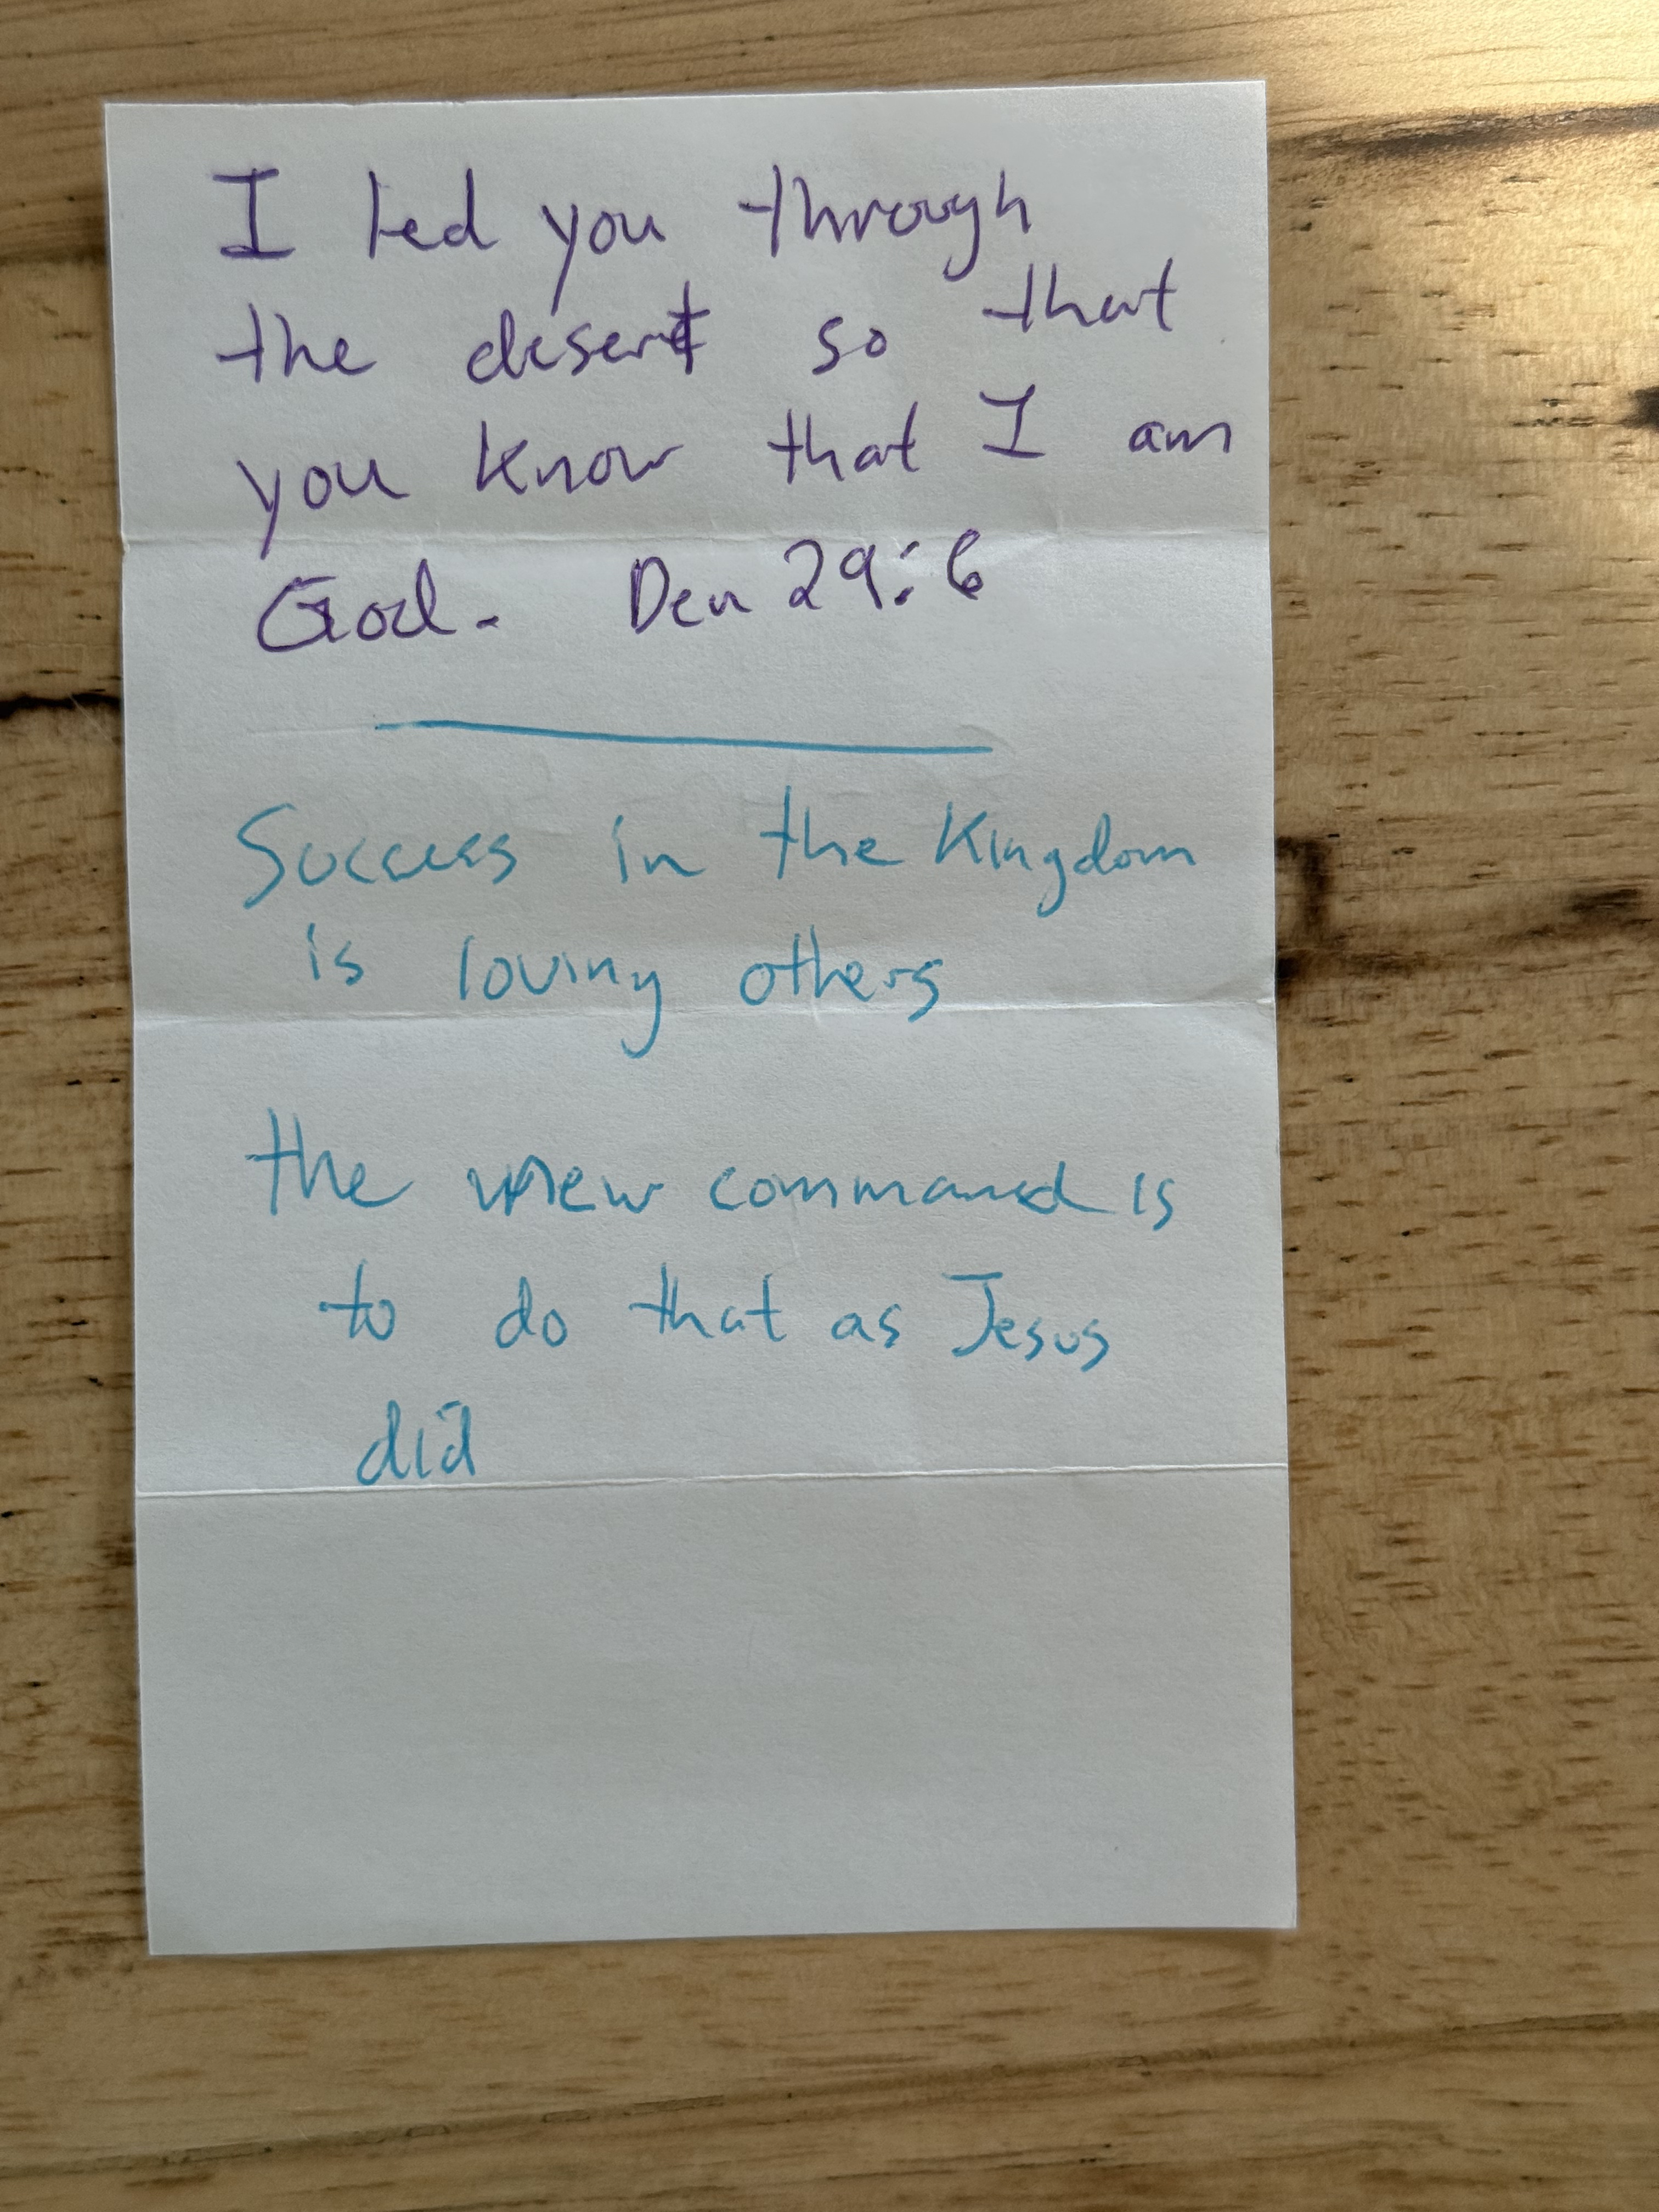 I led you through
the desert so that
you know that I am
God. Deu 29:6
Success in the Kingdom
is loving others
the new command is
to do that as Jesus
did